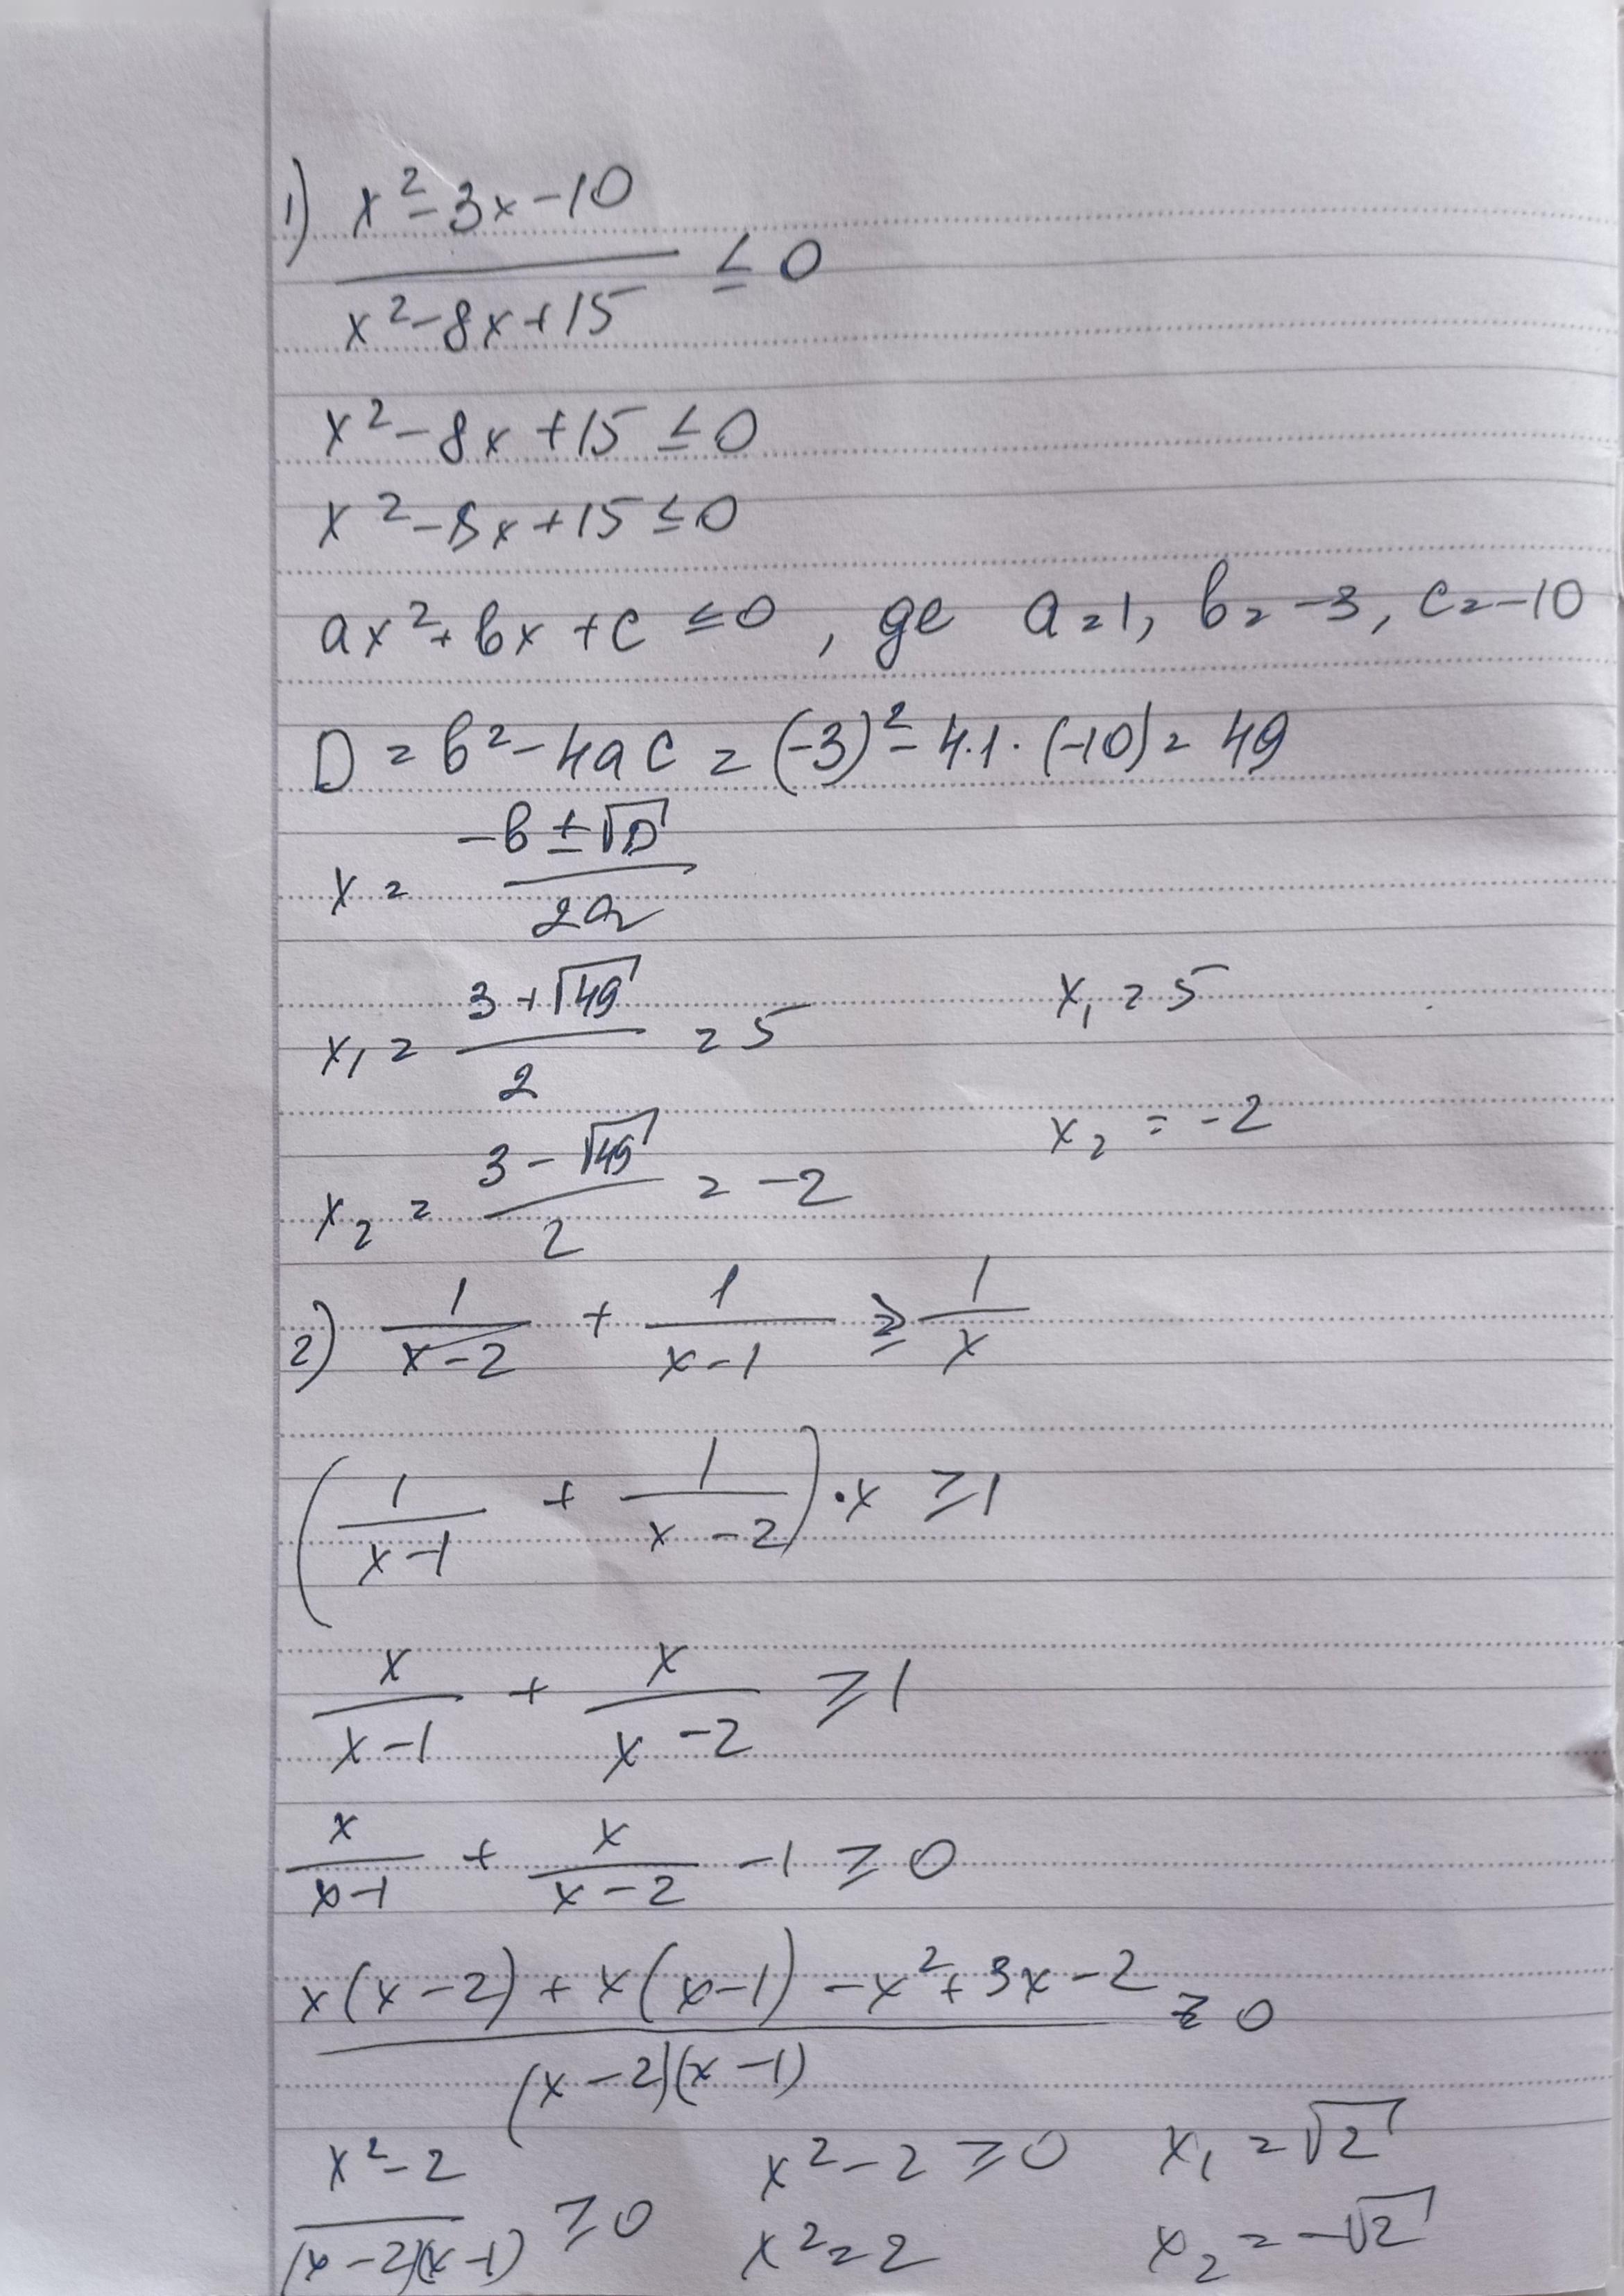 1) x² - 3x - 10
———
x² - 8x + 15 ≤ 0
x² - 8x + 15 ≤ 0
x² - 8x + 15 ≤ 0
ax² + bx + c ≤ 0, де a = 1, b = -3, c = -10
D = b² - 4ac = (-3)² - 4·1·(-10) = 49
x = (-b ± √D) / 2a
x₁ = (3 + √49) / 2 = 5 x₁ = 5
x₂ = (3 - √49) / 2 = -2 x₂ = -2
2) 1/(x-2) + 1/(x-1) ≥ 1/x
(1/(x-1) + 1/(x-2)) · x ≥ 1
x/(x-1) + x/(x-2) ≥ 1
x/(x-1) + x/(x-2) - 1 ≥ 0
(x(x-2) + x(x-1) - x² + 3x - 2) / ((x-2)(x-1)) ≥ 0
(x² - 2) / ((x-2)(x-1)) ≥ 0 x² - 2 ≥ 0 x₁ = √2
x² = 2 x₂ = -√2